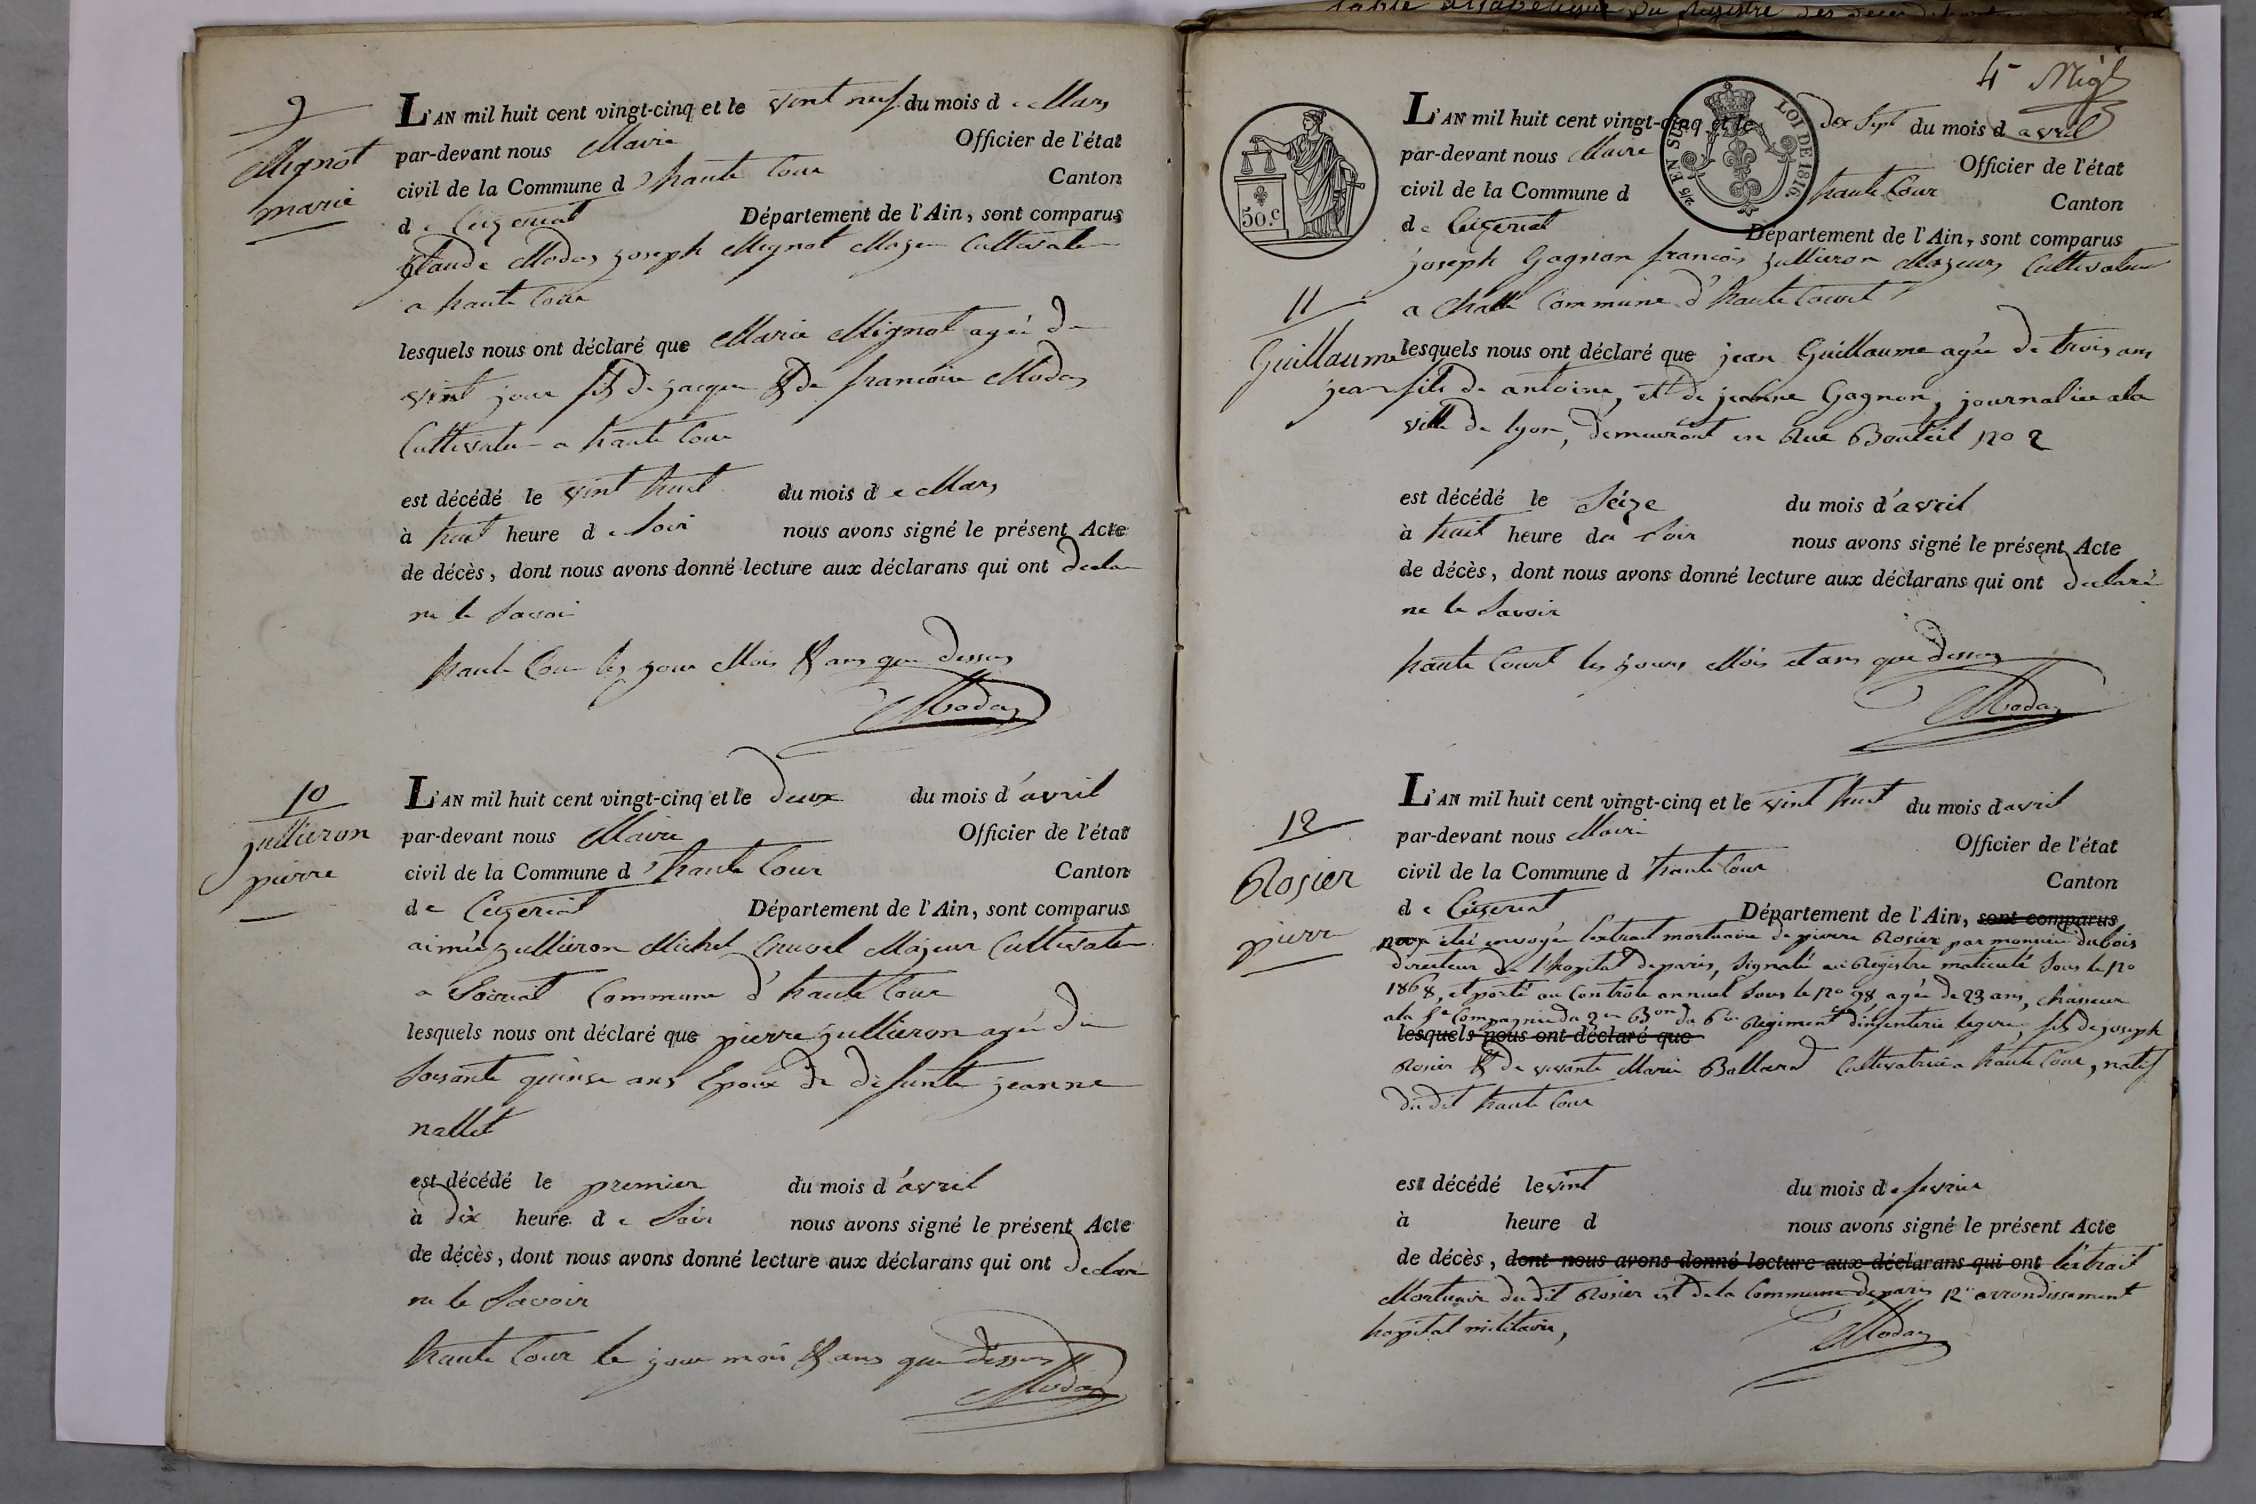 9
Mignot
marie
L'AN mil huit cent vingt-cinq et le vint neuf du mois de Mars
par-devant nous Maire Officier de l'état
civil de la Commune d'haute Cour Canton
de Ceyzeriat Département de l'Ain, sont comparus
Claude Modas joseph Mignot Majeu Cultivateu
a haute Cour
lesquels nous ont déclaré que Marie Mignot agée de
vint jour fils de jacque & de francoise Modas
Cultivateu a haute Cour
est décédé le vint huit du mois de Mars
à huit heure de Soir nous avons signé le présent Acte
de décès, dont nous avons donné lecture aux déclarans qui ont declare
ne le Savoir
haute Cour les jour Mois & ans que dessus
Modas
10
jullieron
pierre
L'AN mil huit cent vingt-cinq et le deux du mois d'avril
par-devant nous Maire Officier de l'état
civil de la Commune d'haute Cour Canton
de Ceyzeriat Département de l'Ain, sont comparus
aimée jullieron Michel Majeur Cultivateu
a Commune d'haute Cour
lesquels nous ont déclaré que pierre jullieron agée de
Soisante quinse ans Epoux de defunte jeanne
nallet
est décédé le premier du mois d'avril
à dix heure de Soir nous avons signé le présent Acte
de décès, dont nous avons donné lecture aux déclarans qui ont declaré
ne le Savoir
haute Cour le jour mois & ans que dessus
Modas
4e
50.c
25 EN SUS LOI DE 1816
L'AN mil huit cent vingt-cinq et le dix Sept du mois d avril
par-devant nous Maire Officier de l'état
civil de la Commune d haute Cour Canton
de Ceyzeriat Département de l'Ain, sont comparus
joseph Gagnon francois jullieron Majeurs Cultivateu
a Challe Commune d'haute Court
11
Guillaume
jean
lesquels nous ont déclaré que jean Guillaume agée de trois ans
fils de antoine, et de jeanne Gagnon, journalier a la
ville de lyon, demeurant en Rue Bouteil no 2
est décédé le Seize du mois d'avril
à huit heure du Soir nous avons signé le présent Acte
de décès, dont nous avons donné lecture aux déclarans qui ont declaré
ne le Savoir
haute Court les jours Mois et ans que dessus
Modas
12
Rosier
pierre
L'AN mil huit cent vingt-cinq et le vint huit du mois d avril
par-devant nous Maire Officier de l'état
civil de la Commune d'haute Cour Canton
de Ceyzeriat Département de l'Ain, sont comparus
nous été envoyée l'extrait mortuaire de pierre Rosier par monsieur dubois
directeur de l'hopital de paris, Signalé au Registre matriculé Sous le no
1868, et porté au Controle annuel Sous le no 98 agée de 23 ans, chasseur
a la 5e Compagnie du 2me Bon du 6me Regiment d'infenterie legere, fils de joseph
lesquels nous ont déclaré que
Rosier & de vivante Marie Balland Cultivatrice a haute Cour, natif
du dit haute Cour
est décédé le vint du mois de fevrier
à heure d nous avons signé le présent Acte
de décès, dont nous avons donné lecture aux déclarans qui ont l'extrait
Mortuaire du dit Rosier est de la Commune de paris 12e arrondissement
hopital militaire,
Modas